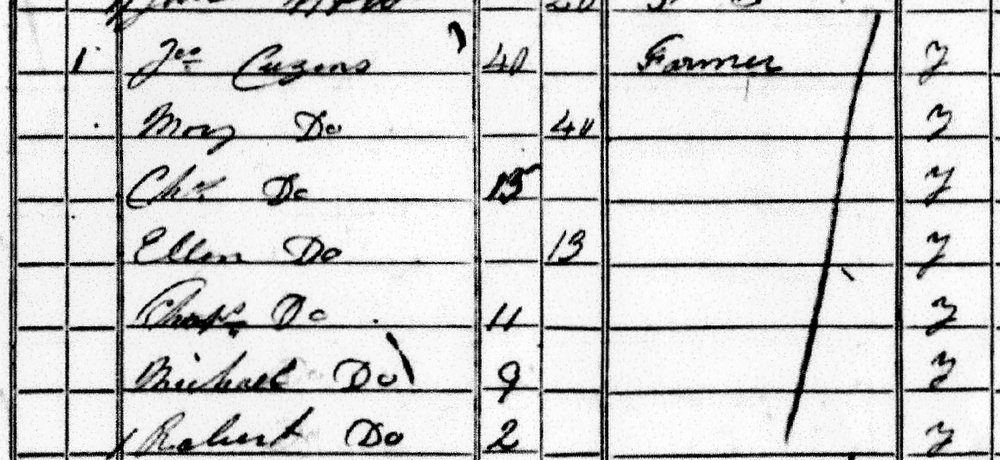 20
1 Jno Cuzens 40 Farmer y
Mary Do 40 y
Chs Do 15 y
Ellen Do 13 y
Do 11 y
Michael Do 9 y
Robert Do 2 y